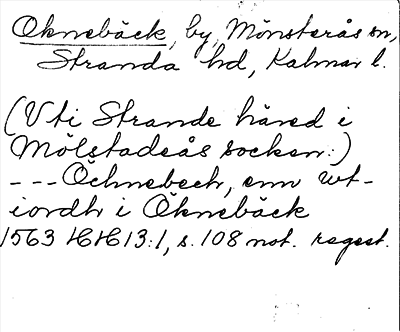 Oknebäck, by, Mönsterås sn,
Stranda hd, Kalmar l.
(Vti Strande häred i
Mölstadeås socken:)
--- Öchnebech, enn wt-
iordh i Öknebäck
1563 HH 13:1, s. 108 not. regest.